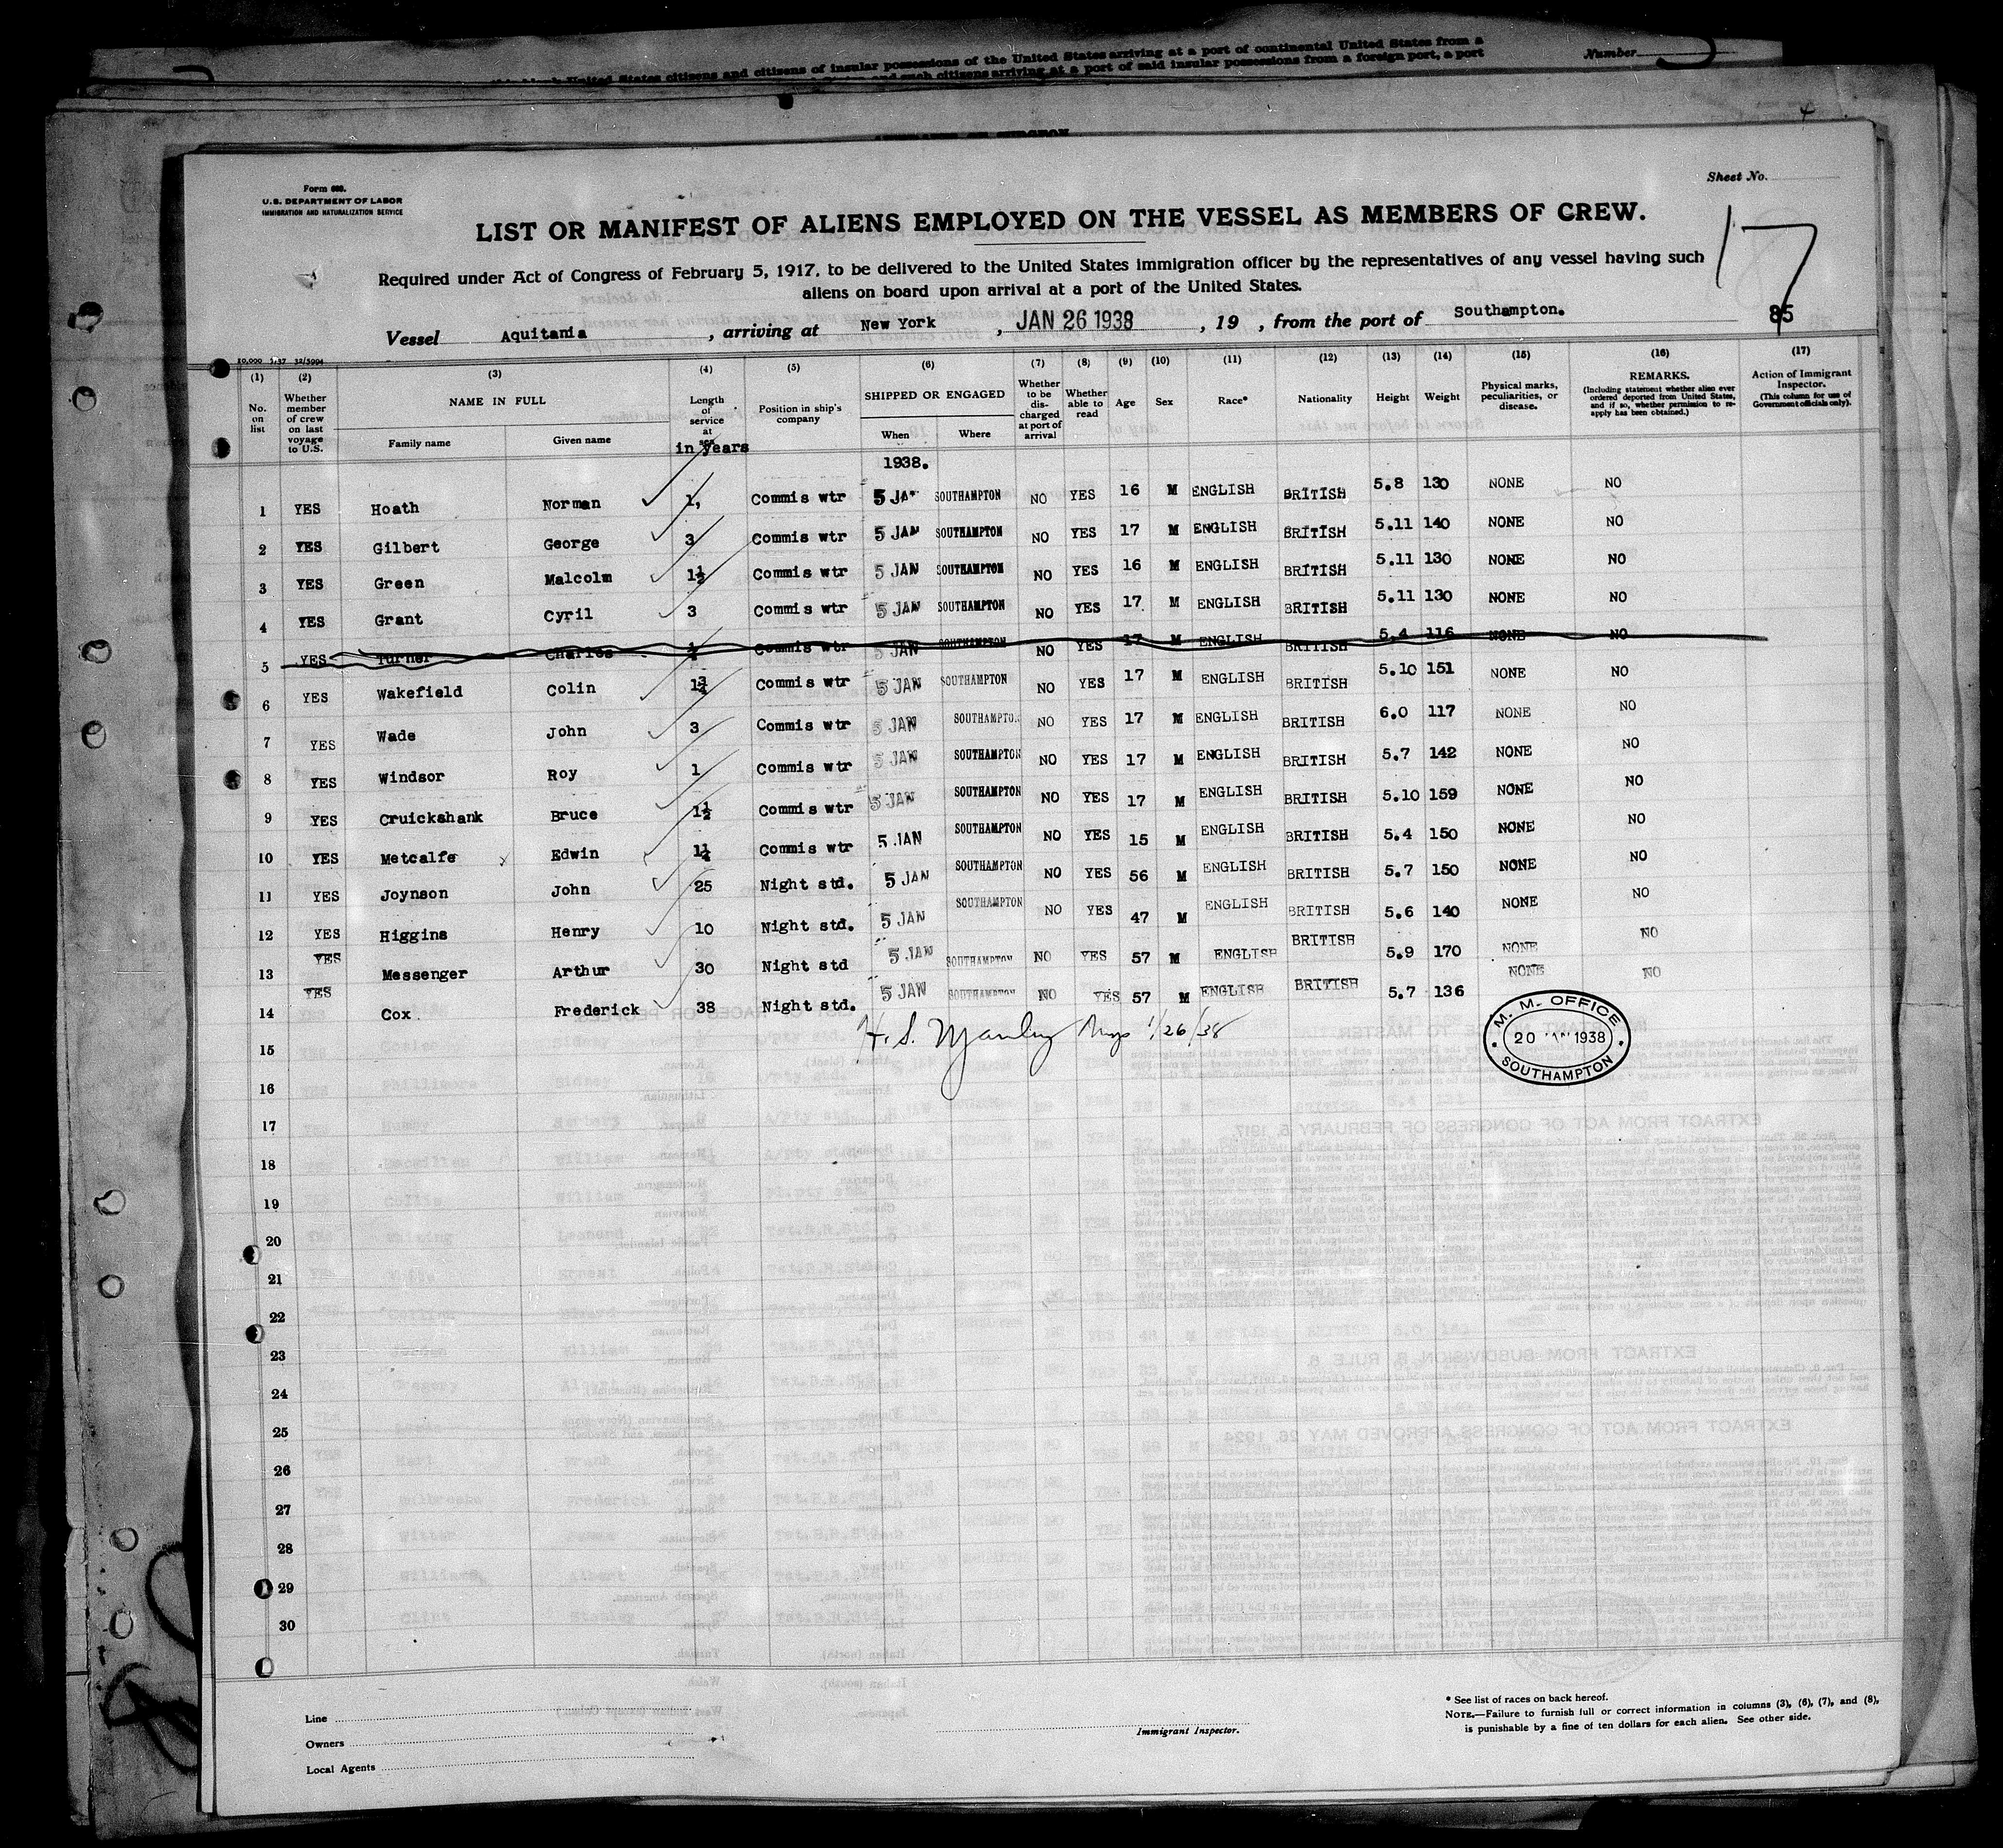 this United States citizens and citizens of insular possessions of the United States arriving at a port of continental United States from a
and such citizens arriving at a port of said insular possessions from a foreign port, a port
Number
4
Sheet No.
Form 680.
U.S. DEPARTMENT OF LABOR
IMMIGRATION AND NATURALIZATION SERVICE
LIST OR MANIFEST OF ALIENS EMPLOYED ON THE VESSEL AS MEMBERS OF CREW.
17
Required under Act of Congress of February 5, 1917, to be delivered to the United States immigration officer by the representatives of any vessel having such
aliens on board upon arrival at a port of the United States.
85
Vessel Aquitania , arriving at New York , JAN 26 1938 , 19 , from the port of Southampton.
(1) (2) (3) (4) (5) (6) (7) (8) (9) (10) (11) (12) (13) (14) (15) (16) (17)
No. on list
Whether member of crew on last voyage to U.S.
NAME IN FULL
Family name
Given name
Length of service at sea
in years
Position in ship's company
SHIPPED OR ENGAGED
When
Where
Whether to be discharged at port of arrival
Whether able to read
Age
Sex
Race*
Nationality
Height
Weight
Physical marks, peculiarities, or disease.
REMARKS.
(Including statement whether alien ever ordered deported from United States, and if so, whether permission to reapply has been obtained.)
Action of Immigrant Inspector.
(This column for use of Government officials only).
1938.
1 YES Hoath Norman 1, Commis wtr 5 JAN SOUTHAMPTON NO YES 16 M ENGLISH BRITISH 5.8 130 NONE NO
2 YES Gilbert George 3 Commis wtr 5 JAN SOUTHAMPTON NO YES 17 M ENGLISH BRITISH 5.11 140 NONE NO
3 YES Green Malcolm 1½ Commis wtr 5 JAN SOUTHAMPTON NO YES 16 M ENGLISH BRITISH 5.11 130 NONE NO
4 YES Grant Cyril 3 Commis wtr 5 JAN SOUTHAMPTON NO YES 17 M ENGLISH BRITISH 5.11 130 NONE NO
5 YES Turner Charles Commis wtr 5 JAN SOUTHAMPTON NO YES 17 M ENGLISH BRITISH 5.4 116 NONE NO
6 YES Wakefield Colin 1¾ Commis wtr 5 JAN SOUTHAMPTON NO YES 17 M ENGLISH BRITISH 5.10 151 NONE NO
7 YES Wade John 3 Commis wtr 5 JAN SOUTHAMPTON NO YES 17 M ENGLISH BRITISH 6.0 117 NONE NO
8 YES Windsor Roy 1 Commis wtr 5 JAN SOUTHAMPTON NO YES 17 M ENGLISH BRITISH 5.7 142 NONE NO
9 YES Cruickshank Bruce 1½ Commis wtr 5 JAN SOUTHAMPTON NO YES 17 M ENGLISH BRITISH 5.10 159 NONE NO
10 YES Metcalfe Edwin 1¼ Commis wtr 5 JAN SOUTHAMPTON NO YES 15 M ENGLISH BRITISH 5.4 150 NONE NO
11 YES Joynson John 25 Night std. 5 JAN SOUTHAMPTON NO YES 56 M ENGLISH BRITISH 5.7 150 NONE NO
12 YES Higgins Henry 10 Night std. 5 JAN SOUTHAMPTON NO YES 47 M ENGLISH BRITISH 5.6 140 NONE NO
13 YES Messenger Arthur 30 Night std 5 JAN SOUTHAMPTON NO YES 57 M ENGLISH BRITISH 5.9 170 NONE NO
14 YES Cox Frederick 38 Night std. 5 JAN SOUTHAMPTON NO YES 57 M ENGLISH BRITISH 5.7 136 NONE NO
H. S. Manley 1/26/38
M. M. OFFICE
20 JAN 1938
SOUTHAMPTON
15
16
17
18
19
20
21
22
23
24
25
26
27
28
29
30
Line
Owners
Local Agents
Immigrant Inspector.
* See list of races on back hereof.
NOTE.—Failure to furnish full or correct information in columns (3), (6), (7), and (8),
is punishable by a fine of ten dollars for each alien. See other side.